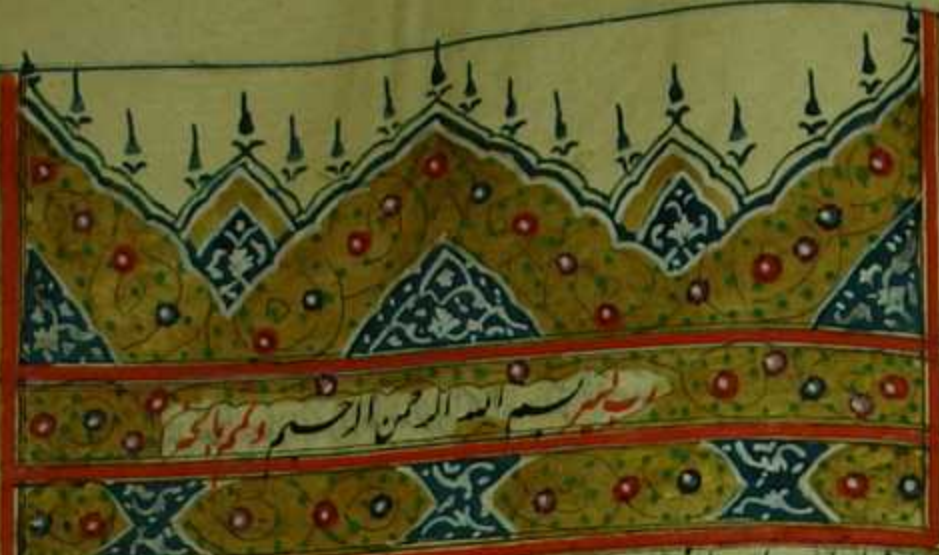 رب یسر بسم الله الرحمن الرحیم وتمم بالخیر